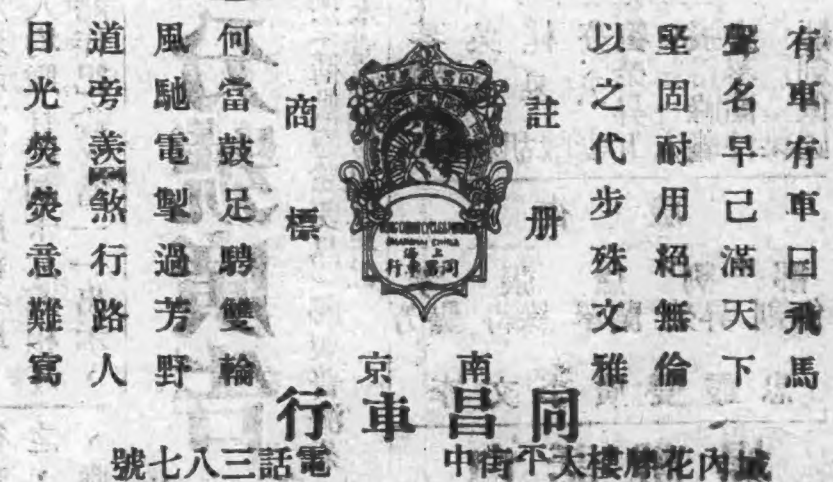 有車有車曰飛馬
聲名早己滿天下
堅固耐用絕無倫
以之代步殊文雅
註册
商標
SHANGHAI CHINA
上海
同昌車行
何當鼓足騁雙輪
風馳電掣過芳野
道旁羨煞行路人
目光熒熒意難寫
南京
同昌車行
城內花牌樓太平街中
電話三八七號